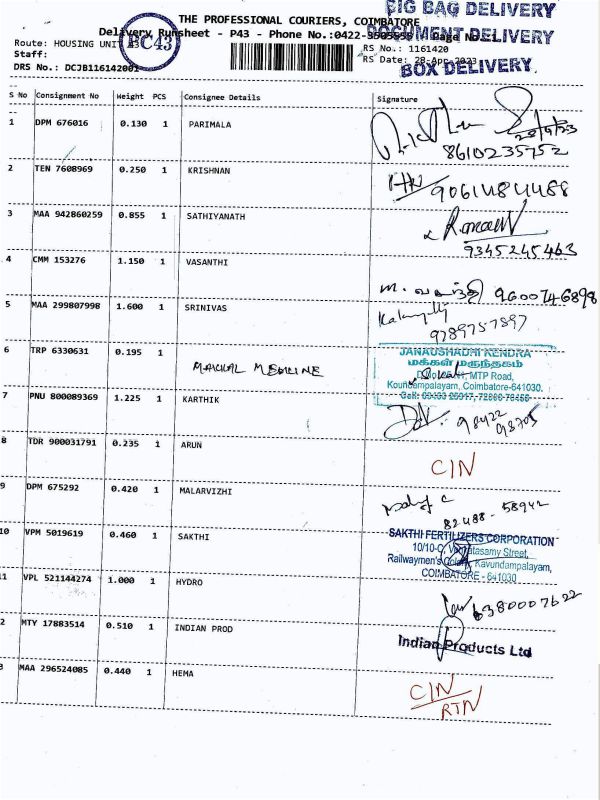 BIG BAG DELIVERY
THE PROFESSIONAL COURIERS, COIMBATORE
DOCUMENT DELIVERY
Delivery Runsheet - P43 - Phone No.:0422- Page No.:
Route: HOUSING UNIT 43
BC43
RS No.: 1161420
Staff:
RS Date: 28-Apr-2023
DRS No.: DCJB116142001
BOX DELIVERY
S No Consignment No Weight PCS Consignee Details Signature
1 DPM 676016 0.130 1 PARIMALA 28/4/23
8610235752
2 TEN 7608969 0.250 1 KRISHNAN 9061484488
3 MAA 942860259 0.855 1 SATHIYANATH
9345245463
4 CMM 153276 1.150 1 VASANTHI
m. வசந்தி 9600746898
5 MAA 299807998 1.600 1 SRINIVAS
9789757897
6 TRP 6330631 0.195 1 MAKKAL MEDICINE
JANAUSHADHI KENDRA
மக்கள் மருந்தகம்
MTP Road,
Koundampalayam, Coimbatore-641030.
7 PNU 800089369 1.225 1 KARTHIK
98422
98705
8 TDR 900031791 0.235 1 ARUN CIN
9 DPM 675292 0.420 1 MALARVIZHI
82488 - 58942
10 VPM 5019619 0.460 1 SAKTHI
SAKTHI FERTILIZERS CORPORATION
10/10-C, Venkatasamy Street,
Railwaymen's Colony, Kavundampalayam,
COIMBATORE - 641030
11 VPL 521144274 1.000 1 HYDRO
6380007622
2 MTY 17883514 0.510 1 INDIAN PROD
Indian Products Ltd
3 MAA 296524085 0.440 1 HEMA CIN
RTN